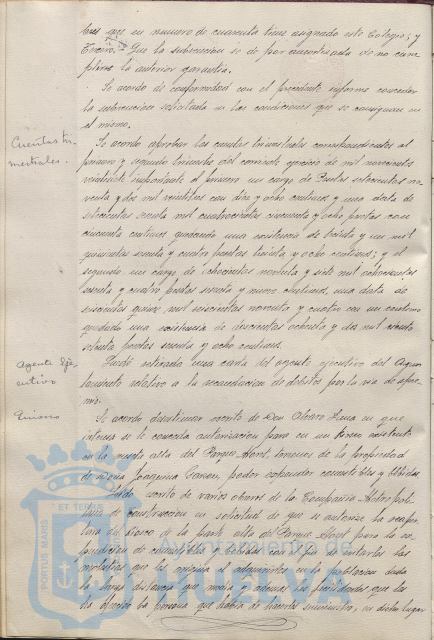 bres que en numero de cuarenta tiene asignado este Colegio; y
Tercero. Que la subvención se de por caducada de no cum
plirse la anterior garantía.
Se acordo de conformidad con el precedente informe conceder
la subvencion solicitada en las condiciones que se consignan en
el mismo.
Cuentas tri
mestrales.
Se acordo aprobar las cuentas trimestrales correspondientes al
primero y segundo trimestre del corriente ejercicio de mil novecientos
veintisiete importante el primero un cargo de Pesetas setecientas no
venta y dos mil veintitres con diez y ocho centimos y una data de
setecientas sesenta mil cuatrocientas cincuenta y ocho pesetas con
cincuenta centimos quedando una existencia de treinta y un mil
quinientas sesenta y cuatro pesetas treinta y ocho centimos; y el
segundo un cargo de ochocientas noventa y siete mil ochocientas
sesenta y cuatro pesetas sesenta y nueve centimos, una data de
seiscientas quince mil seiscientas noventa y cuatro con un centimo
quedando una existencia de doscientas ochenta y dos mil ciento
setenta pesetas sesenta y ocho centimos.
Agente Eje
cutivo
Quedó retirado una carta del agente ejecutivo del Ayun
tamiento relativo a la recaudacion de debitos por la via de apre
mio.
Kioscos
Se acordo desestimar escrito de Don Alvaro Lima en que
interesa se le conceda autorizacion para en un kiosco existente
en la parte alta del Parque Alonso Sanchez de la propiedad
de Doña Joaquina Garcia, poder expender comestibles y bebidas.
Leido escrito de varios obreros de la Compañia Metropoli
tana de Construccion en solicitud de que se autorice la reaper
tura del kiosco de la parte alta del Parque para la ex
pendicion de comestibles y bebidas con el fin de evitarles las
molestias que les origina el adquirirlos en la poblacion dada
la larga distancia que media y ademas las facilidades que les
ha ofrecido la persona que habia de hacerles suministro, en dicho lugar
PORTUS MARIS
ET TERRIS
Ayuntamiento de
HUELVA